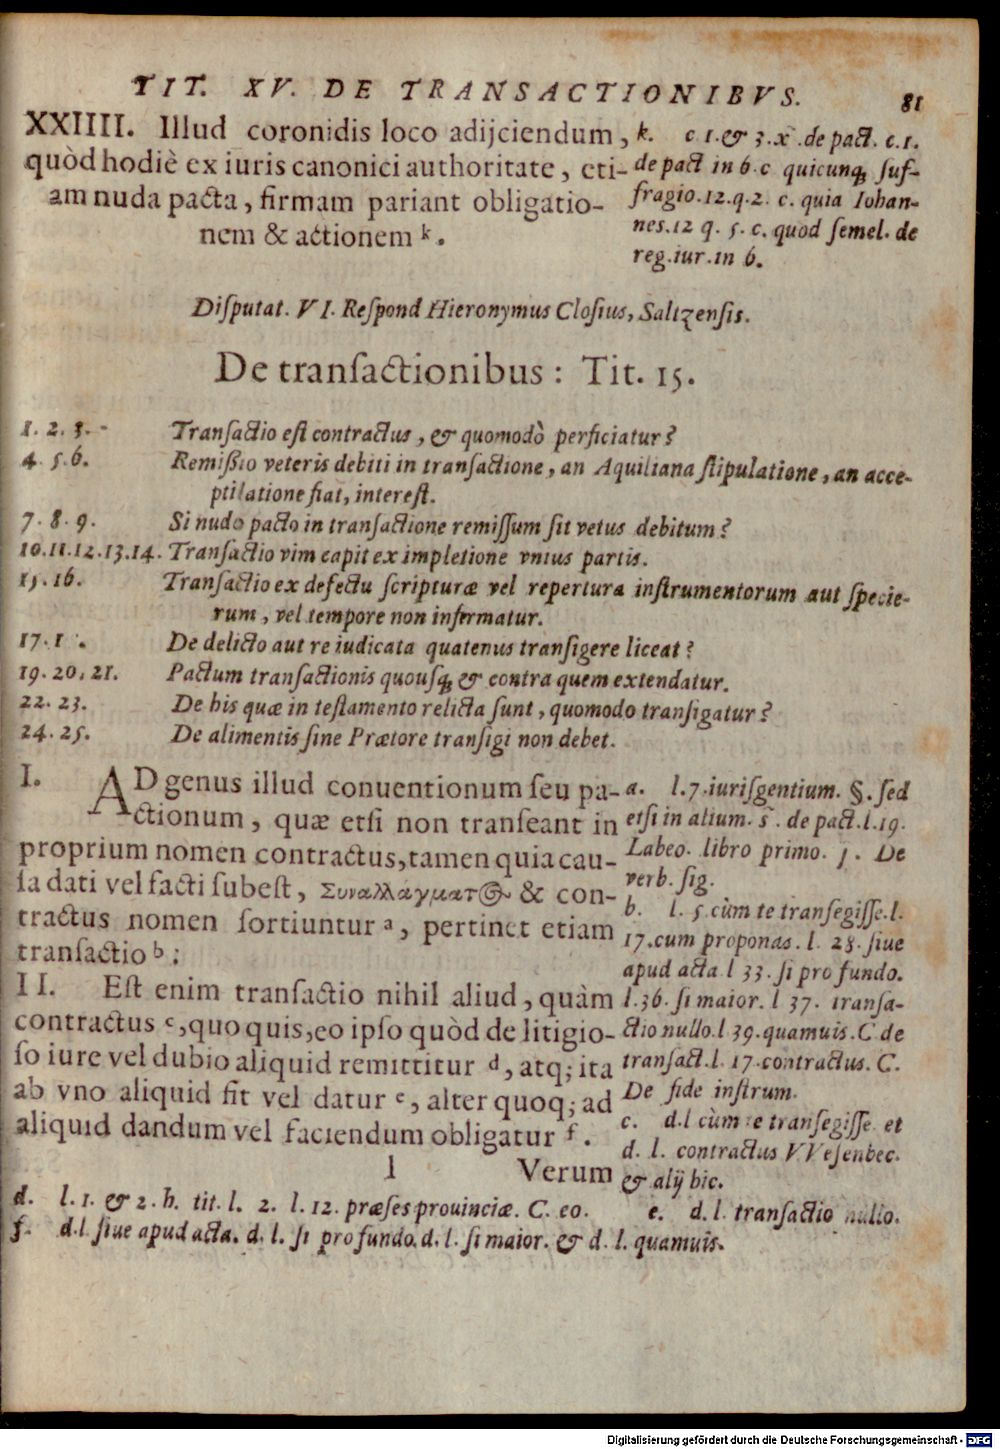 TIT. XV. DE TRANSACTIONIBVS. 81
XXIIII. Illud coronidis loco adijciendum,
quòd hodiè ex iuris canonici authoritate, eti-
am nuda pacta, firmam pariant obligatio-
nem & actionem k.
k. c. 1. & 3. x̃. de pact. c. 1.
de pact in 6. c quicunq; ſuf-
fragio. 12. q. 2. c. quia Iohan-
nes. 12 q. 5. c. quod ſemel. de
reg. iur. in 6.
Diſputat. VI. Reſpond Hieronymus Cloſius, Saltzenſis.
De tranſactionibus: Tit. 15.
1. 2. 3. Tranſactio eſt contractus, & quomodò perficiatur?
4. 5. 6. Remißio veteris debiti in tranſactione, an Aquiliana ſtipulatione, an acce-
ptilatione fiat, intereſt.
7. 8. 9. Si nudo pacto in tranſactione remiſſum ſit vetus debitum?
10. 11. 12. 13. 14. Tranſactio vim capit ex impletione vnius partis.
15. 16. Tranſactio ex defectu ſcripturæ vel repertura inſtrumentorum aut ſpecie-
rum, vel tempore non infirmatur.
17. 1 . De delicto aut re iudicata quatenus tranſigere liceat?
19. 20. 21. Pactum tranſactionis quouſq; & contra quem extendatur.
22. 23. De his quæ in teſtamento relicta ſunt, quomodo tranſigatur?
24. 25. De alimentis ſine Prætore tranſigi non debet.
I. AD genus illud conuentionum ſeu pa-
ctionum, quæ etſi non tranſeant in
proprium nomen contractus, tamen quia cau-
ſa dati vel facti ſubeſt, Συναλλάγματος & con-
tractus nomen ſortiuntur a, pertinet etiam
tranſactio b:
II. Eſt enim tranſactio nihil aliud, quàm
contractus c, quo quis, eo ipſo quòd de litigio-
ſo iure vel dubio aliquid remittitur d, atq; ita
ab vno aliquid fit vel datur e, alter quoq; ad
aliquid dandum vel faciendum obligatur f.
l Verum
a. l. 7. iuriſgentium. §. ſed
etſi in alium. s̃. de pact. l. 19.
Labeo. libro primo. j. De
verb. ſig.
b. l. 5. cùm te tranſegiſſe. l.
17. cum proponas. l. 28. ſiue
apud acta l 33. ſi pro fundo.
l. 36. ſi maior. l 37. tranſa-
ctio nullo. l 39. quamuis. C de
tranſact. l. 17. contractus. C.
De fide inſtrum.
c. d. l cùm te tranſegiſſe et
d. l. contractus VVeſenbec.
& alij hic.
d. l. 1. & 2. h. tit. l. 2. l. 12. præſes prouinciæ. C. eo. e. d. l. tranſactio nullo.
f. d. l. ſiue apud acta. d. l. ſi pro fundo. d. l. ſi maior. & d. l. quamuis.
Digitalisierung gefördert durch die Deutsche Forschungsgemeinschaft - DFG